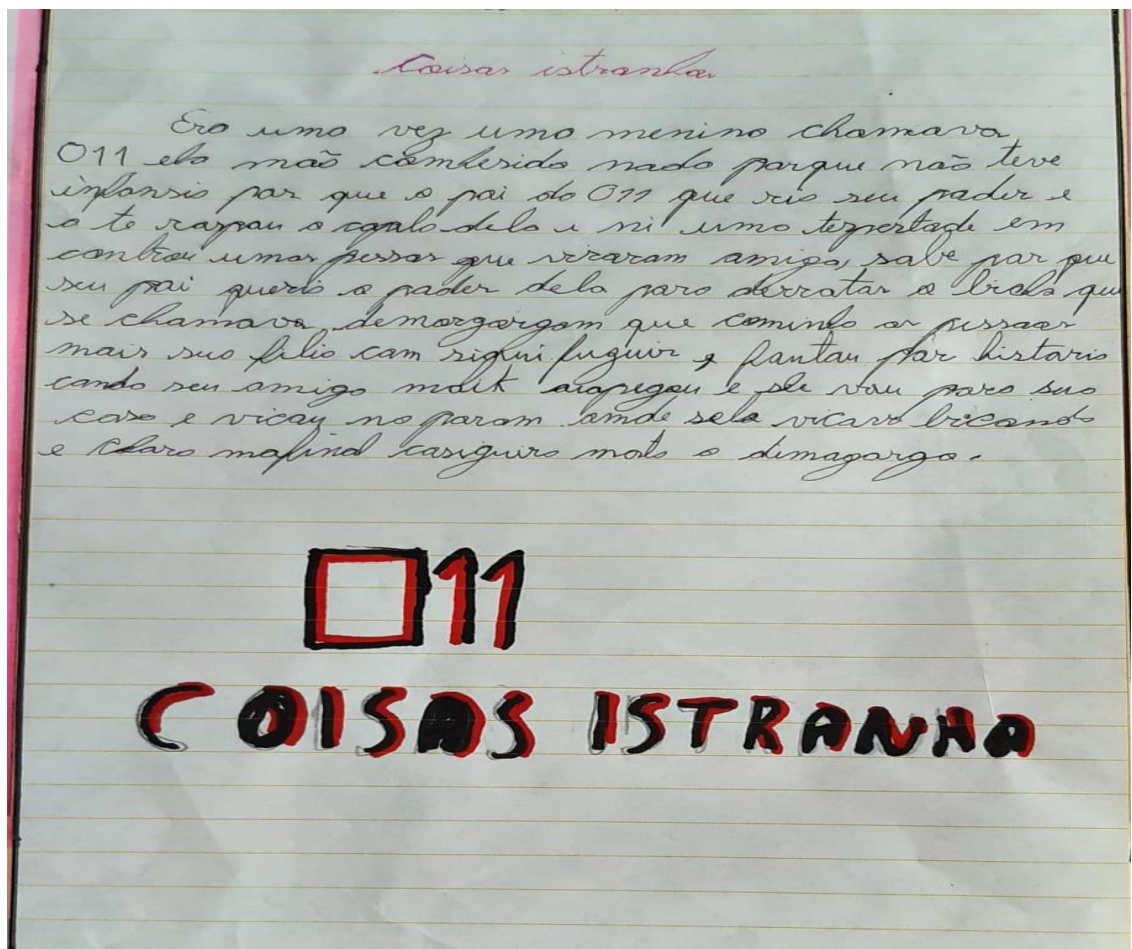 Coisas istranha
Era uma vez uma menina chamava
011 ela não conheside nada porque não teve
infansia por que o pai do 011 que ria seu poder e
a te raspou o cabalo dela e ni uma tespertade em
controu umas pessas que viraram amigo, sabe por que
seu pai queria o poder dela para derratar o bicho que
se chamava demorgorgom que cominha as pessoas
mais seu filio com sigui fuguir e fantau par historia
cando seu amigo maik a pegou e ele vou para sua
casa e vicou no param onde sela vicava bricando
e claro mafinal casiguiro mata o dimagorgo.
011
COISAS ISTRANHA